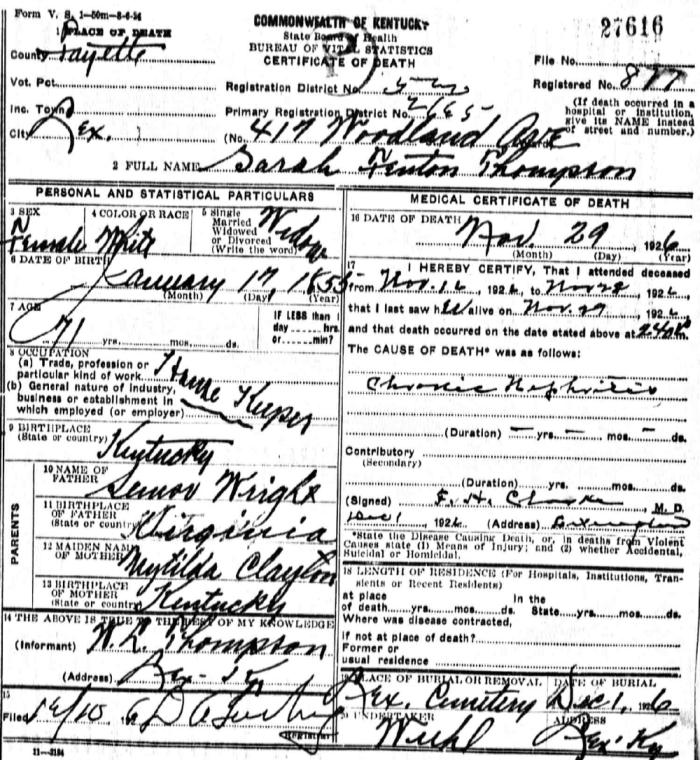 Form V. S. 1—50m—8-6-24
COMMONWEALTH OF KENTUCKY
27616
1 PLACE OF DEATH
State Board of Health
County Fayette
BUREAU OF VITAL STATISTICS
CERTIFICATE OF DEATH
File No.
Vot. Pct.
Registration District No.
Registered No.
Inc. Town
Primary Registration District No. 2165
(If death occurred in a hospital or institution, give its NAME instead of street and number.)
City Lex.
(No. 417 Woodland Ave
2 FULL NAME Sarah Fenton Thompson
PERSONAL AND STATISTICAL PARTICULARS
3 SEX Female
4 COLOR OR RACE White
5 Single Married Widowed or Divorced (Write the word) Widow
6 DATE OF BIRTH January 17, 1855
(Month) (Day) (Year)
7 AGE 71 yrs. mos. ds.
IF LESS than 1 day hrs. or min?
8 OCCUPATION
(a) Trade, profession or particular kind of work House Keeper
(b) General nature of industry, business or establishment in which employed (or employer)
9 BIRTHPLACE
(State or country) Kentucky
PARENTS
10 NAME OF FATHER Wright
11 BIRTHPLACE OF FATHER
(State or country) Virginia
12 MAIDEN NAME OF MOTHER Mytilda Clayton
13 BIRTHPLACE OF MOTHER
(State or country) Kentucky
14 THE ABOVE IS TRUE TO THE BEST OF MY KNOWLEDGE
(Informant) W. L. Thompson
(Address) Lex - Ky
15
Filed
Registrar
11—3184
MEDICAL CERTIFICATE OF DEATH
16 DATE OF DEATH Nov. 29, 1926
(Month) (Day) (Year)
17 I HEREBY CERTIFY, That I attended deceased
from Nov. 16, 1926, to Nov 1926
that I last saw her alive on Nov. 1926
and that death occurred on the date stated above at
The CAUSE OF DEATH* was as follows:
Chronic Nephritis
(Duration) — yrs. — mos. — ds.
Contributory
(Secondary)
(Duration) yrs. mos. ds.
(Signed) M. D.
Dec 1 1926 (Address) Lexington
*State the Disease Causing Death, or, in deaths from Violent Causes state (1) Means of Injury; and (2) whether Accidental, Suicidal or Homicidal.
18 LENGTH OF RESIDENCE (For Hospitals, Institutions, Transients or Recent Residents)
at place of death yrs. mos. ds. In the State yrs. mos. ds.
Where was disease contracted,
if not at place of death?
Former or usual residence
19 PLACE OF BURIAL OR REMOVAL Lex. Cemetery
DATE OF BURIAL Dec 1, 1926
20 UNDERTAKER
ADDRESS Lex. Ky